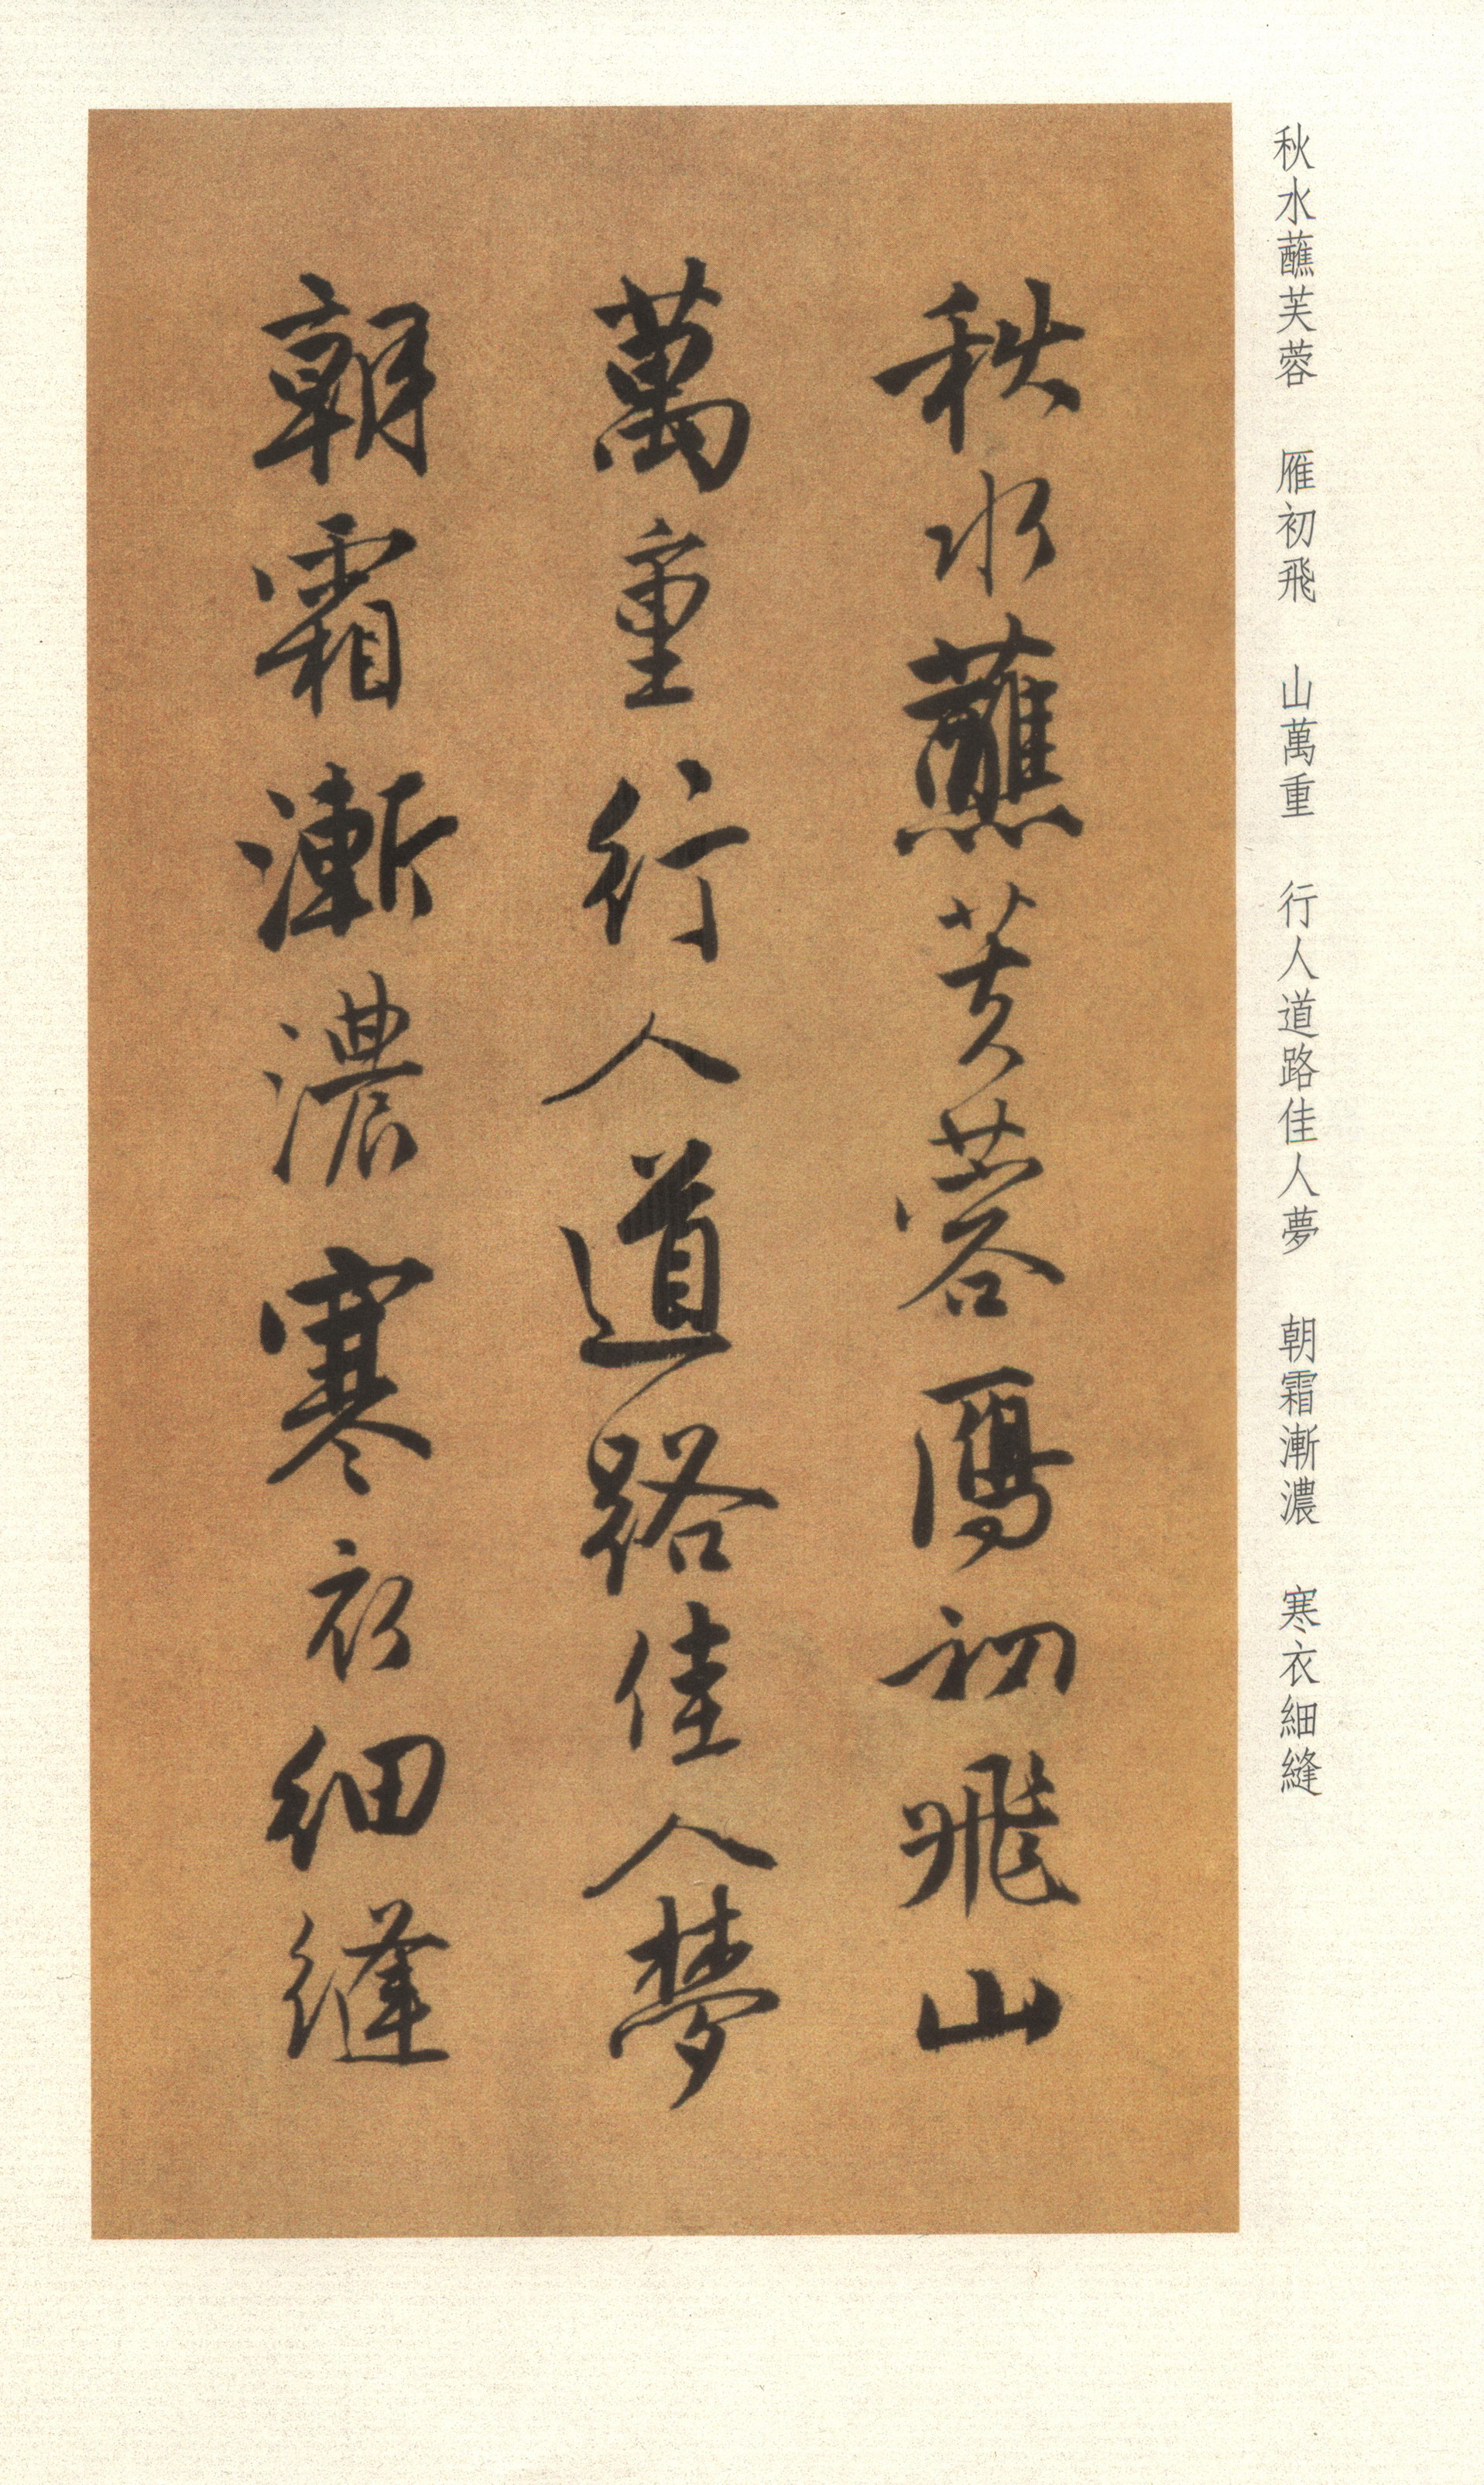 秋水蘸芙蓉　雁初飛　山萬重　行人道路佳人夢　朝霜漸濃　寒衣細縫
秋水蘸芙蓉鴈初飛山
萬重行人道路佳人夢
朝霜漸濃寒衣細縫